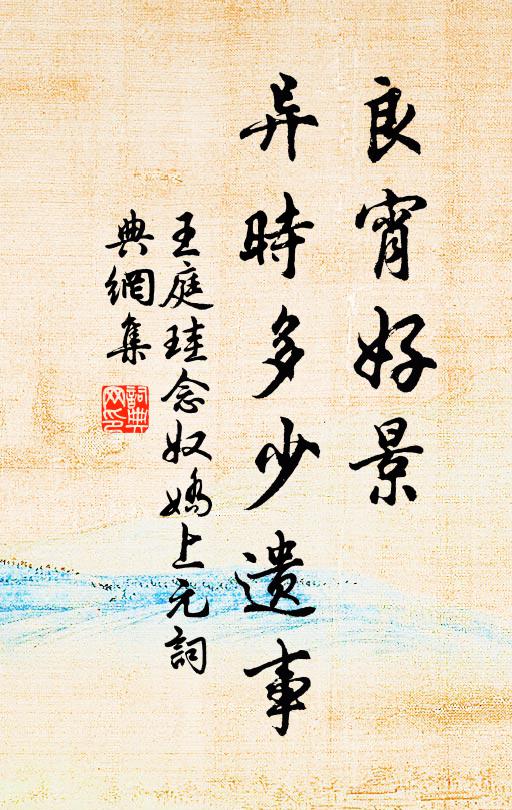 良宵好景
异時多少遗事
王庭珪念奴嬌上元詞
典網集
詞典网印